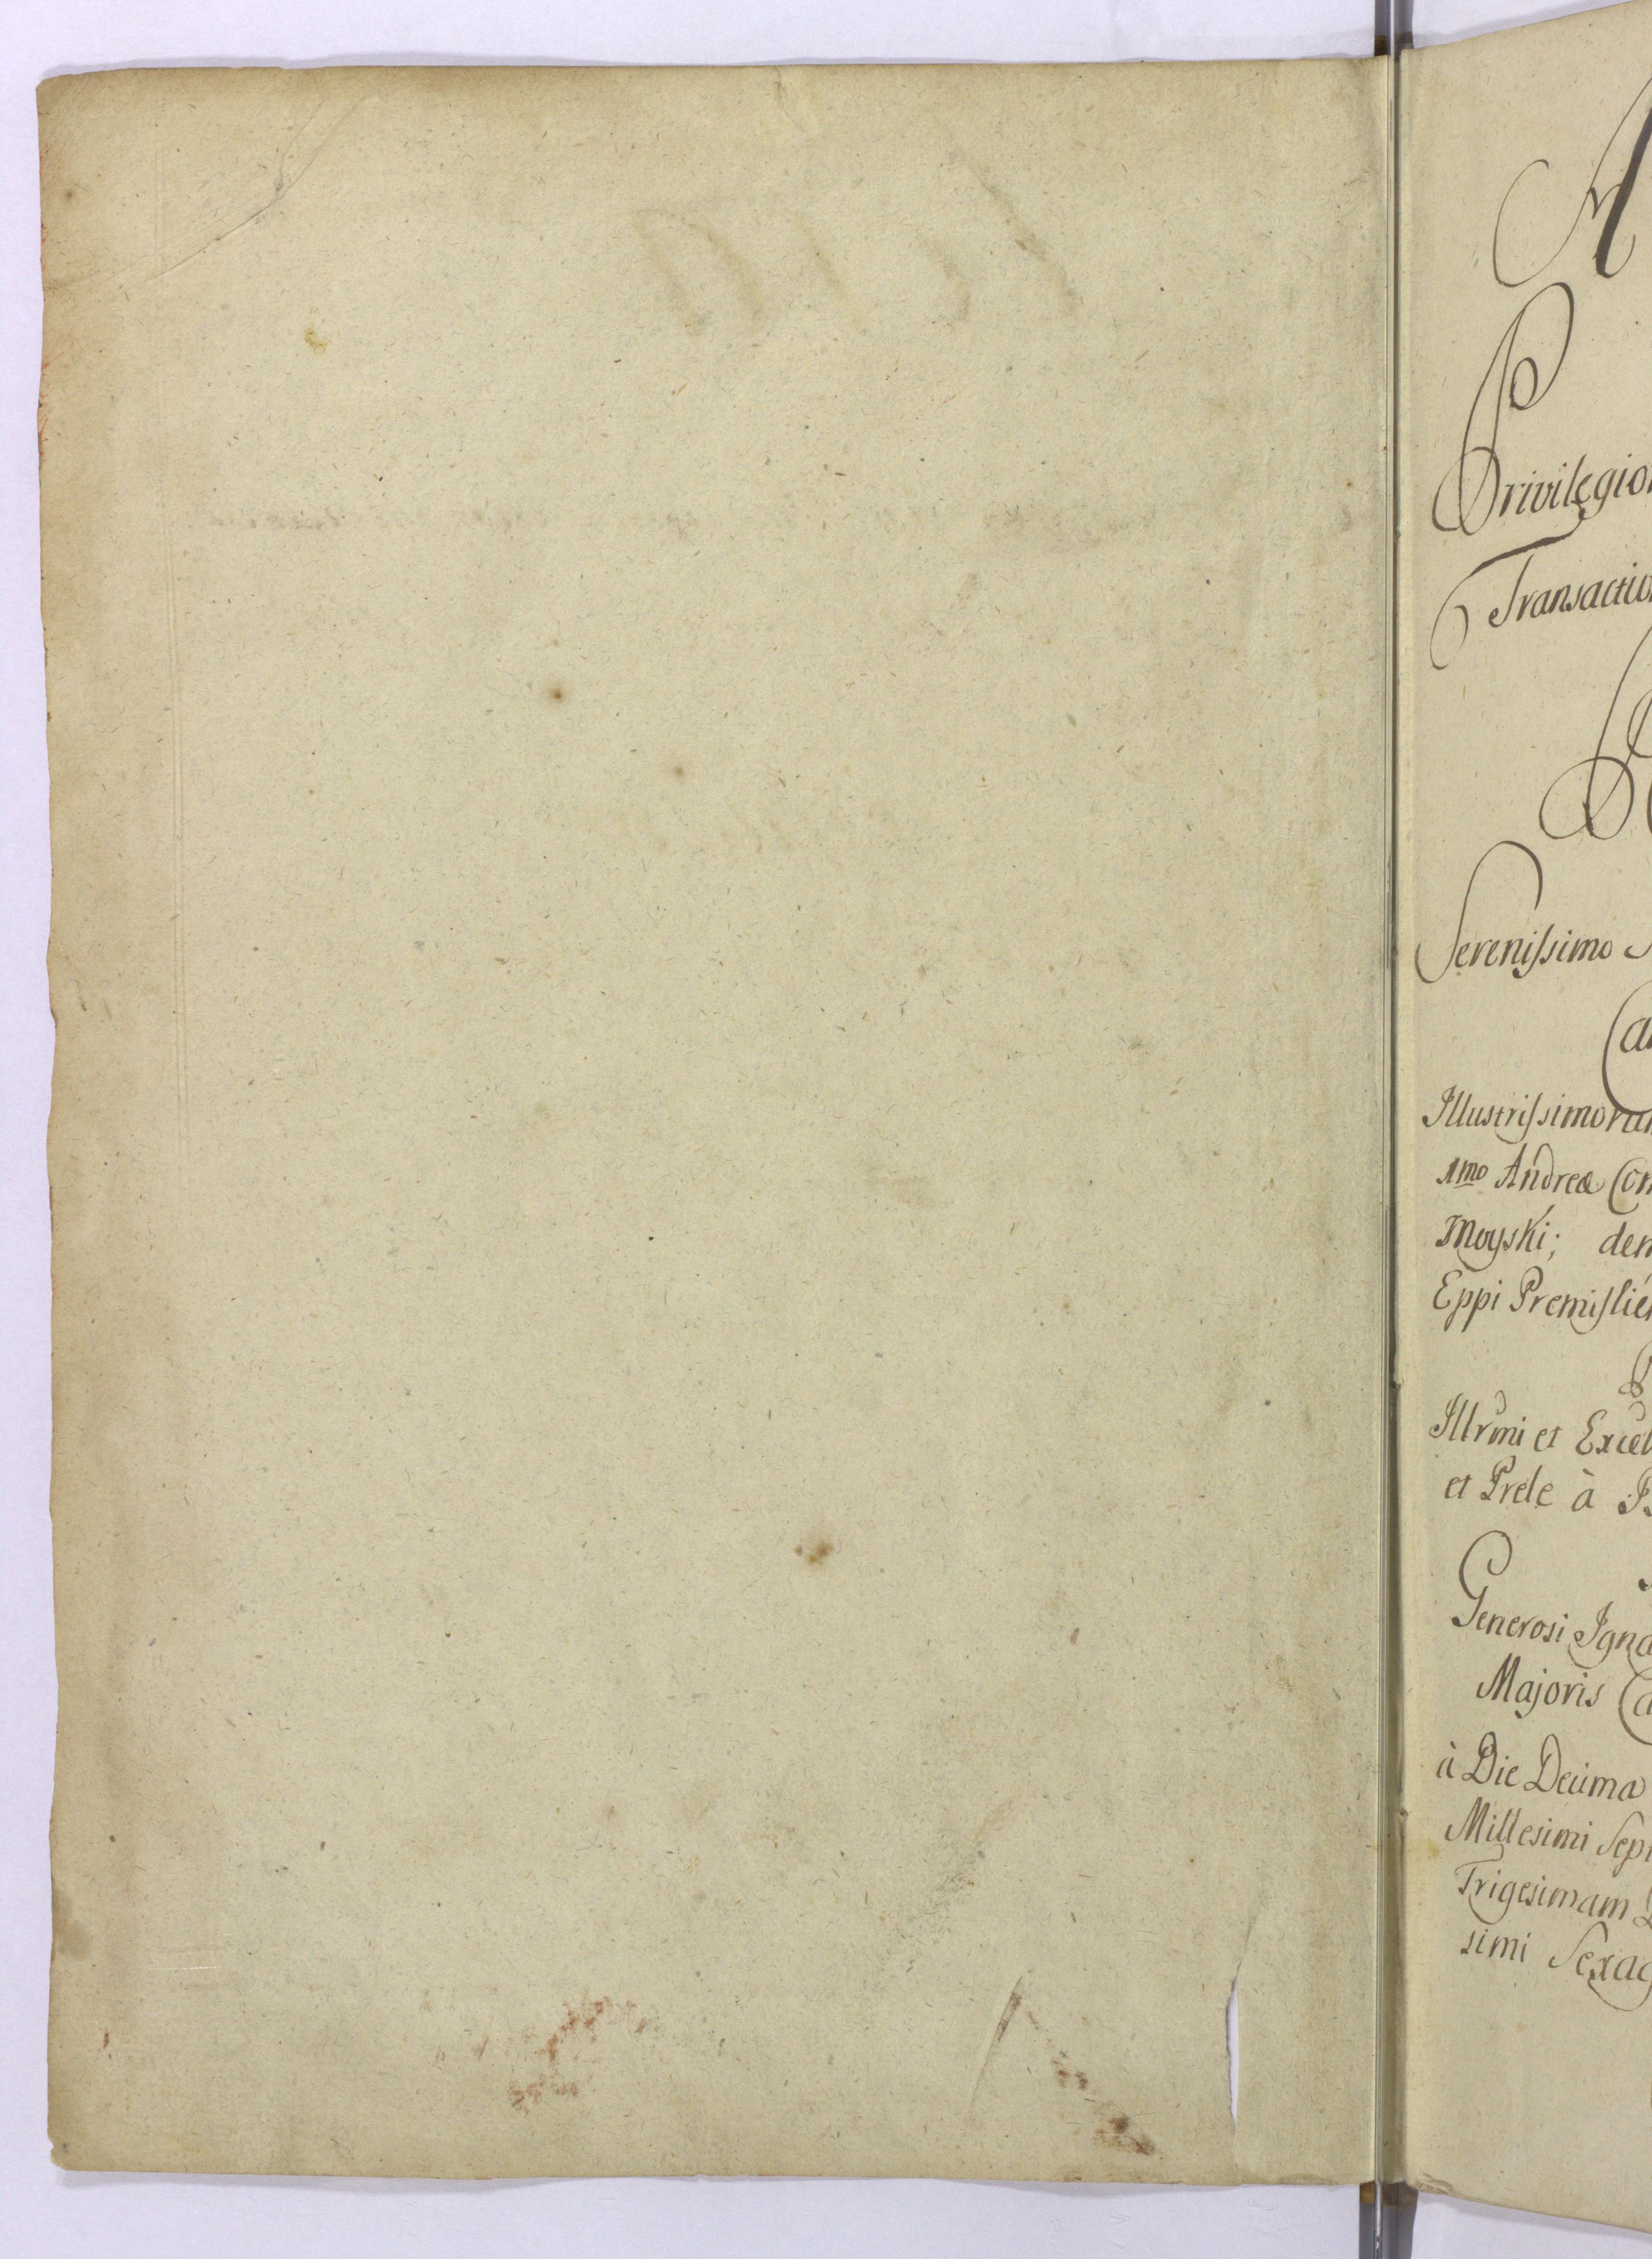 A
Privilegio
Transactio
Serenissimo
Ca
Illustrissimoru
1mo Andreæ Com
Moyski; den
Eppi Premislié
Illrmi et Excel
et Prele à
Generosi Igna
Majoris Ca
à Die Decima
Millesimi Sept
Trigesimam
simi Sexag